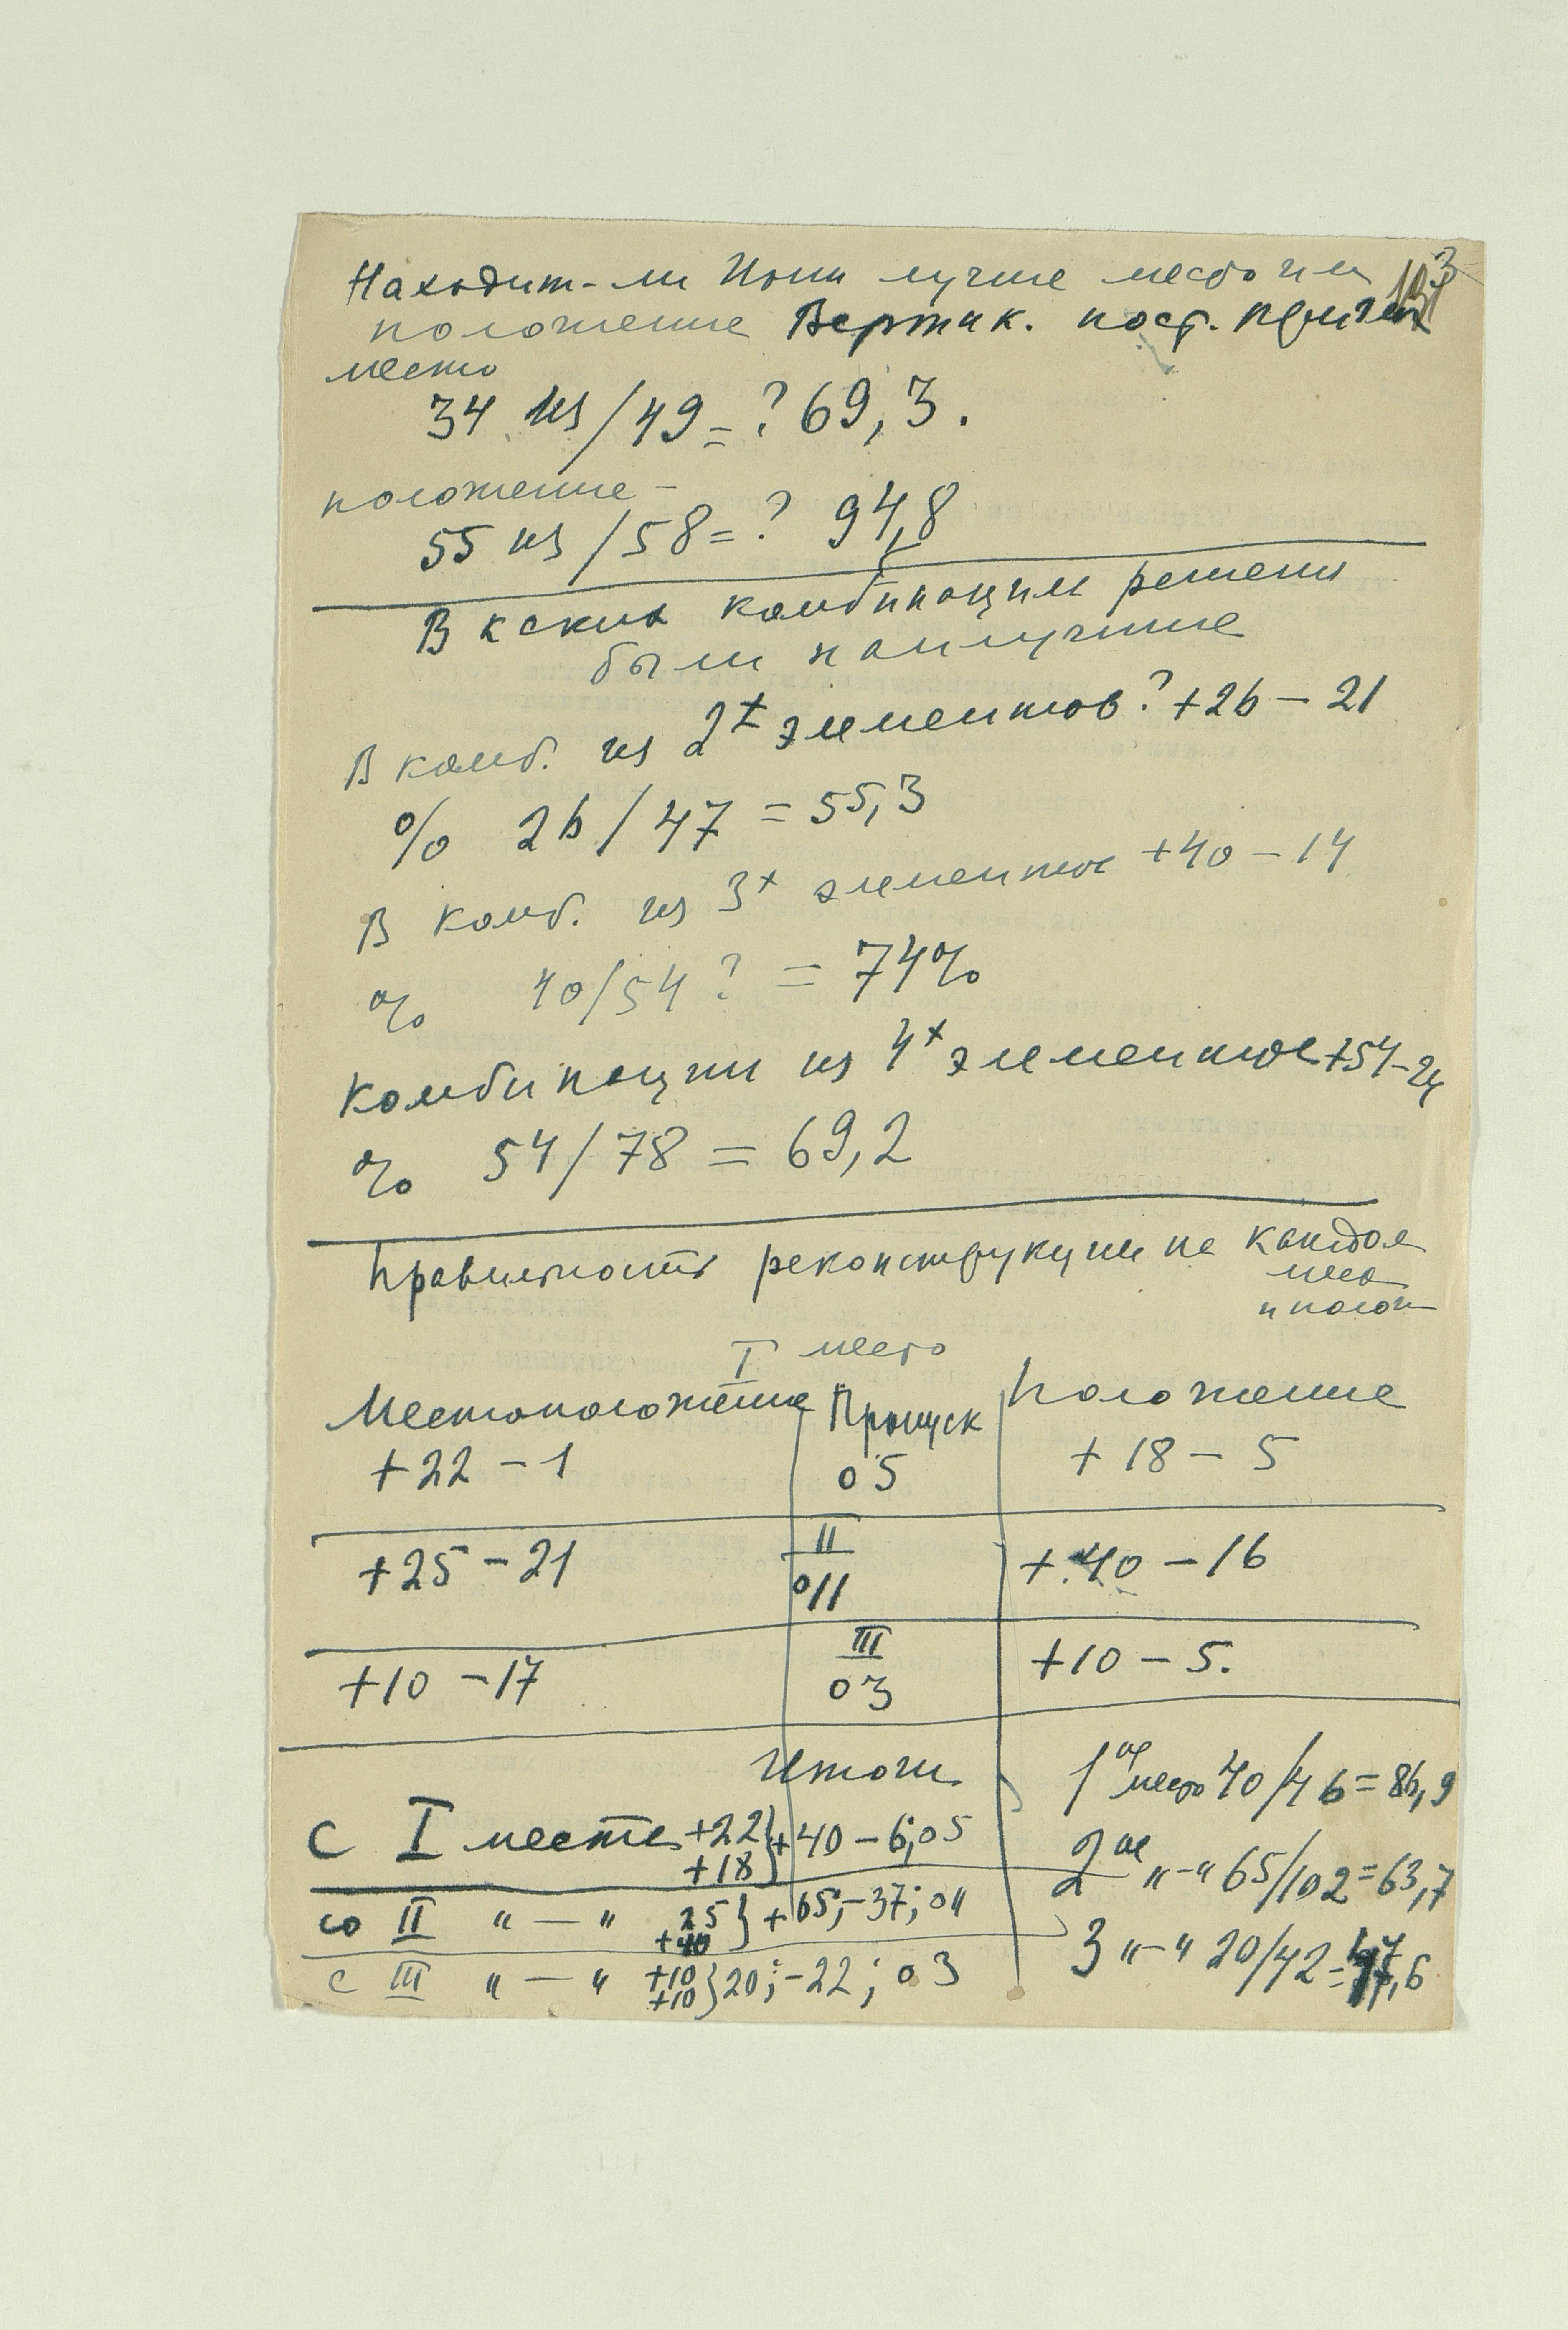 Находит-ли Иони лучше место или
положение Вертик. пост. причем
место
34 из/49=? 69,3.
положение –
55 из/58=? 94,8
В каких комбинации решения
были наилучшие
В комб. из 2х элементов? +26 – 21
% 26/47 = 55,3
В комб. из 3х элементов +40 – 14
% 40/54? = 74%
Комбинации из 4х элементов +54–24
% 54/78 = 69,2
Правильность реконструкции на каждом
месте
и полож
I место
Местоположение Пропуск Положение
+22 – 1 05 +18 – 5
II
+25 – 21 011 +40 – 16
III
+10 – 17 03 +10 – 5.
Итоги
1ое место 40/46 = 86,9
С I месте +22 +18 } +40 – 6; 05
2ое "–" 65/102 = 63,7
со II " — " 25 +40 } +65; –37; 011
3 "–" 20/42 = 47,6
с III " — " +10 +10 } 20; –22; 03